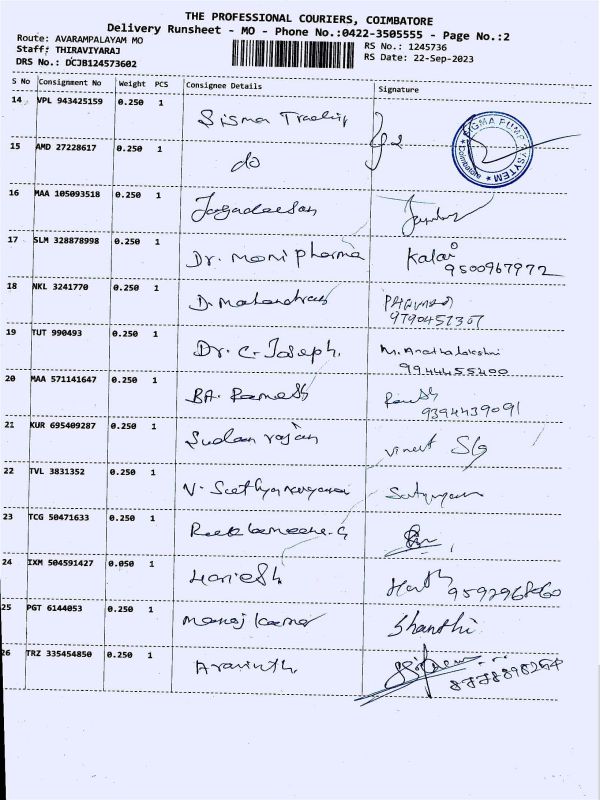 THE PROFESSIONAL COURIERS, COIMBATORE
Delivery Runsheet - MO - Phone No.:0422-3505555 - Page No.:2
Route: AVARAMPALAYAM MO
RS No.: 1245736
Staff: THIRAVIYARAJ
RS Date: 22-Sep-2023
DRS No.: DCJB124573602
S No Consignment No Weight PCS Consignee Details Signature
14 VPL 943425159 0.250 1 Sigma Trading
SIGMA PUMP SYSTEM
Coimbatore
15 AMD 27228617 0.250 1 do
16 MAA 105093518 0.250 1 Jagadeesan
17 SLM 328878998 0.250 1 Dr. Mani Pharma Kalai
9500967972
18 NKL 3241770 0.250 1 D. Mahendran
9790457307
19 TUT 990493 0.250 1 Dr. C. Joseph. M. Anathalakshmi
9944455400
20 MAA 571141647 0.250 1 BA. Ramesh Ramesh
9394439091
21 KUR 695409287 0.250 1 Sudan rajan Vineet
22 TVL 3831352 0.250 1 V. Seethyanarayanan Satyanaran
23 TCG 50471633 0.250 1
24 IXM 504591427 0.050 1 Hariesh
25 PGT 6144053 0.250 1 Manoj kumar Shanthi
26 TRZ 335454850 0.250 1 Aravinth.